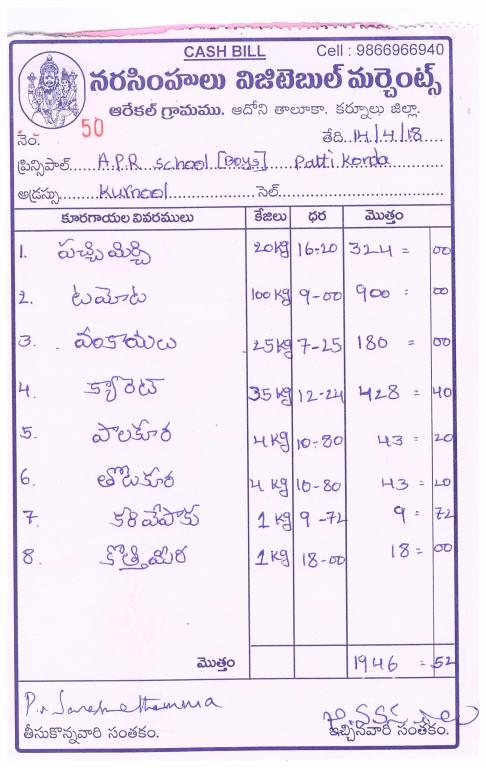 CASH BILL Cell : 9866966940
నరసింహులు విజిటెబుల్ మర్చెంట్స్
ఆరేకల్ గ్రామము. ఆదోని తాలూకా. కర్నూలు జిల్లా.
నెం. 50 తేది. 14/4/18
ప్రిన్సిపాల్ A.P.R School [Boys] Patti Konda
అడ్రస్సు Kurnool సెల్
కూరగాయల వివరములు కేజిలు ధర మొత్తం
1. పచ్చిమిర్చి 20kg 16-20 324 = 00
2. టమోట 100kg 9-00 900 = 00
3. వంకాయలు 25kg 7-25 180 = 00
4. క్యారెట్ 35kg 12-24 428 = 40
5. పాలకూర 4kg 10-80 43 = 20
6. తొటకూర 4kg 10-80 43 = 20
7. కరివేపాకు 1kg 9-72 9 = 72
8. కొత్తిమీర 1kg 18-00 18 = 00
మొత్తం 1946 = 52
తీసుకొన్నవారి సంతకం. ఇచ్చినవారి సంతకం.